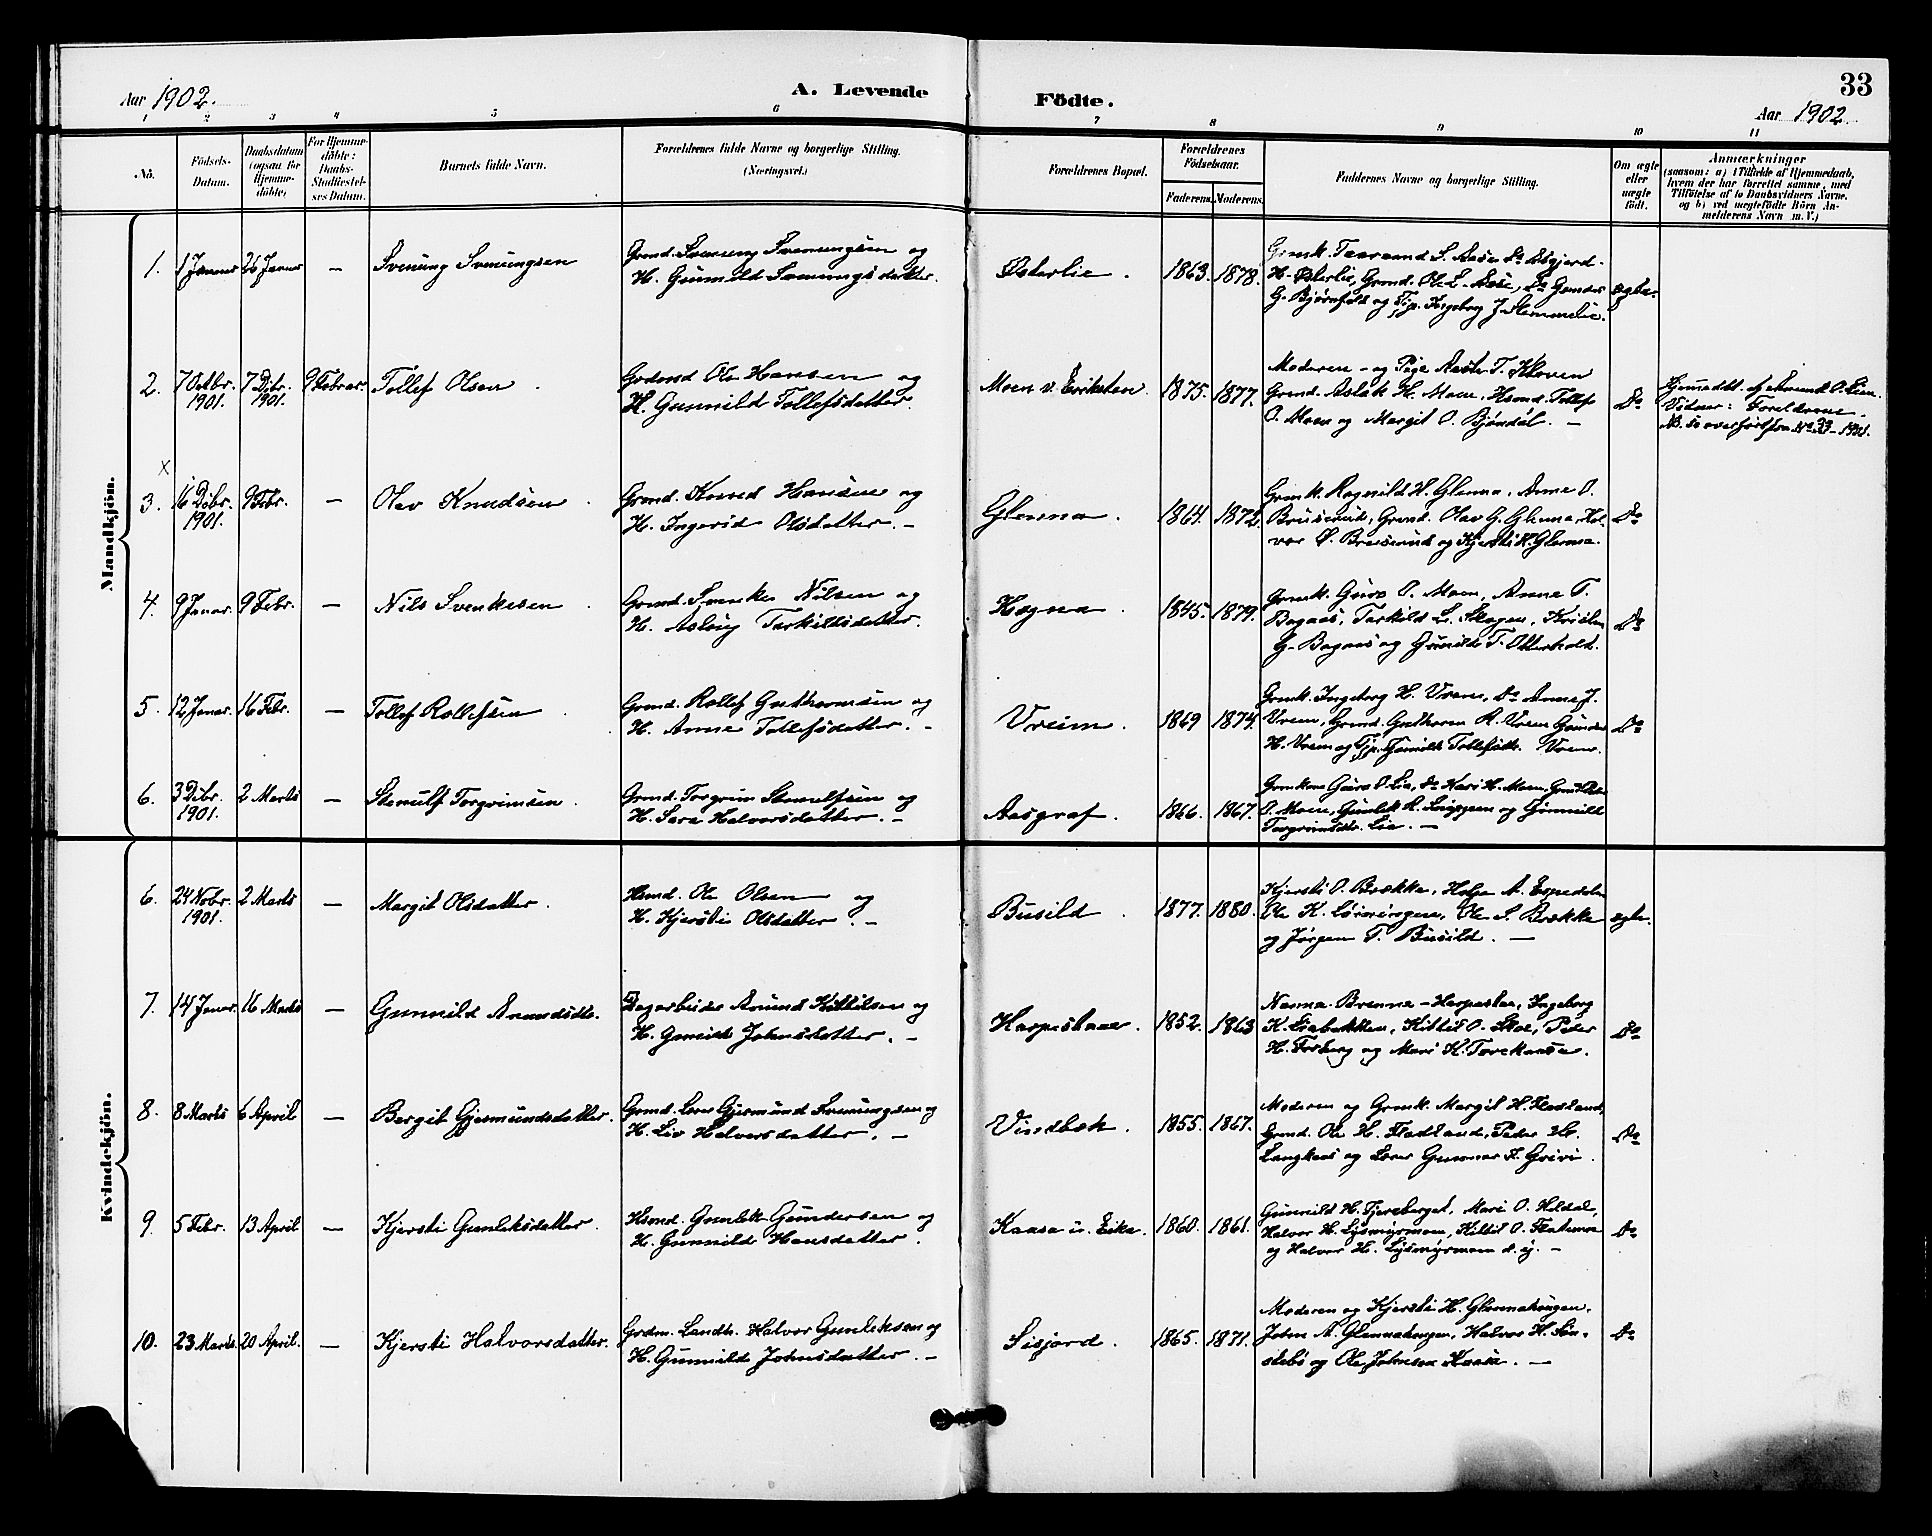 33
Aar 1902.
A. Levende
Födte.
Aar 1902.
1 2 3 4 5 6 7 8 9 10 11
No.
Födsels-
Datum.
Daabsdatum
(ogsaa for
Hjemme-
döbte)
For Hjemme-
döbte:
Daabs-
Stadfæstel-
ses Datum.
Barnets fulde Navn.
Forældrenes fulde Navne og borgerlige Stilling.
(Næringsvei.)
Forældrenes Bopæl.
Forældrenes
Födselsaar.
Faderens. Moderens.
Faddernes Navne og borgerlige Stilling.
Om ægte
eller
uægte
födt.
Anmærkninger
(saasom: a) i Tilfælde af Hjemmedaab,
hvem der har forrettet samme, med
Tilföielse af to Daabsvidners Navne,
og b) ved uægtefödte Börn An-
melderens Navn m. V.)
Mandkjön.
1. 1 Januar 26 Januar — Svenung Svenungsen
Grmd. Svenung Svenungsen og
H. Gunnild Svenungsdatter.
Østerlie. 1863. 1878.
H. Østerlie, Grmd. Ole L. Aase,
G. Bjørnfeld og Tjp. Ingeborg J. Stemmelie.
ægte.
2. 7 Oktbr. 1901. 7 Dcbr. 1901. 9 Februar Tollef Olsen
Grdmd Ole Hansen og
H. Gunnild Tollefsdatter.
Moen u. Eriksten. 1875. 1877.
Moderen – og Pige Aaste T. Kloven
Grmd. Aslak H. Moen, Hsmd. Tollef
O. Moen og Margit O. Bjøndal. —
Do
Hjemmedbt. af Amund O. Lien.
Vidner: Forældrene.
NB. se overført fra No 33 – 1901.
x
3. 16 Dcbr. 1901. 9 Febr. — Olav Knudsen
Grmd. Knud Hansen og
H. Ingerid Olsdatter. –
Glenna. 1864. 1872.
Grmk. Ragnild H. Glenna, Anne O.
Bruserud, Grmd. Olav G. Glenna, Hal-
vor O. Bruserud og Kjersti K. Glenna.
Do
4. 9 Januar. 9 Febr. — Nils Svenkesen
Grmd. Svenke Nilsen og
H. Aslaug Tarkildsdatter.
Høgna. 1845. 1879.
Grmk. Guro O. Moen, Anne T.
Bagaas, Tarkild L. Skogen, Kristen
G. Bagaas og Gunnild T. Otterholt.
Do
5. 12 Januar. 16 Febr. — Tollef Rollefsen
Grmd. Rollef Guthormsen og
H. Anne Tollefsdatter. –
Vreim. 1869 1874.
Grmk. Ingeborg H. Vreim, Do Anne J.
Vreim, Grmd. Guthorm R. Vreim Gunder
H. Vreim og Tjp. Gunnild Tollefsdtr. Vreim.
Do
6. 3 Dcbr. 1901. 2 Marts — Stenulf Torgrimsen
Grmd. Torgrim Stenulfsen og
H. Sara Halvorsdatter. –
Aasgraf. 1866. 1867.
Grmkone Guro O. Lia, Do Kari H. Moen,
O. Moen, Gunlek R. og Gunnild
Torgrimsdtr. Lia. —
Kvindekjön.
6. 24 Novbr. 1901. 2 Marts — Margit Olsdatter.
Hsmd. Ole Olsen og
H. Kjersti Olsdatter. –
Busild. 1877. 1880.
Kjersti O. Brække, Helge A. Espedalen
Ole K. Ole S. Brække
og Jørgen T. Busild. —
ægte.
7. 14 Januar. 16 Marts — Gunnild Amundsdtr.
Dagarbeider Amund Kittilsen og
H. Gunnild Johnsdatter. –
Haspestaae. 1852. 1863
Nanna Brenna – Haspestae, Ingeborg
K. Liabakken, Kittil O. Skoe, Peder
H. Forberg og Mari K. Torekaasa.
Do
8. 8 Marts 6 April — Bergit Gjermundsdatter.
Grmd. Lars Gjermund Svenungsen og
H. Liv Halvorsdatter. –
Vindbæk. 1855. 1867.
Moderen og Grmk. Margit H. Fladland,
Grmd. Ole H. Fladland, Peder Hr.
Langkaas og Gunnar F. Grivi.
Do
9. 5 Febr. 13 April — Kjersti Gunleksdatter.
Hsmd. Gunlek Gundersen og
H. Gunnild Hansdatter.
Kaasa u. Eika. 1860. 1861.
Gunnild H. Tjursberget, Mari O. Kildal,
Halvor H. Lysmyrmoen, Kittil O. Flatemoe
og Halvor H. Lysmyrmoen d. y. –
Do
10. 23 Marts. 20 April. — Kjersti Halvorsdatter.
Grdm. Landh. Halvor Gunleksen og
H. Gunnild Johnsdatter. –
Sisjord. 1865. 1871.
Moderen og Kjersti H. Glennahaugen,
John A. Glennahaugen, Halvor H. Søn-
stebø og Ole Johnsen Kaasa. —
Do